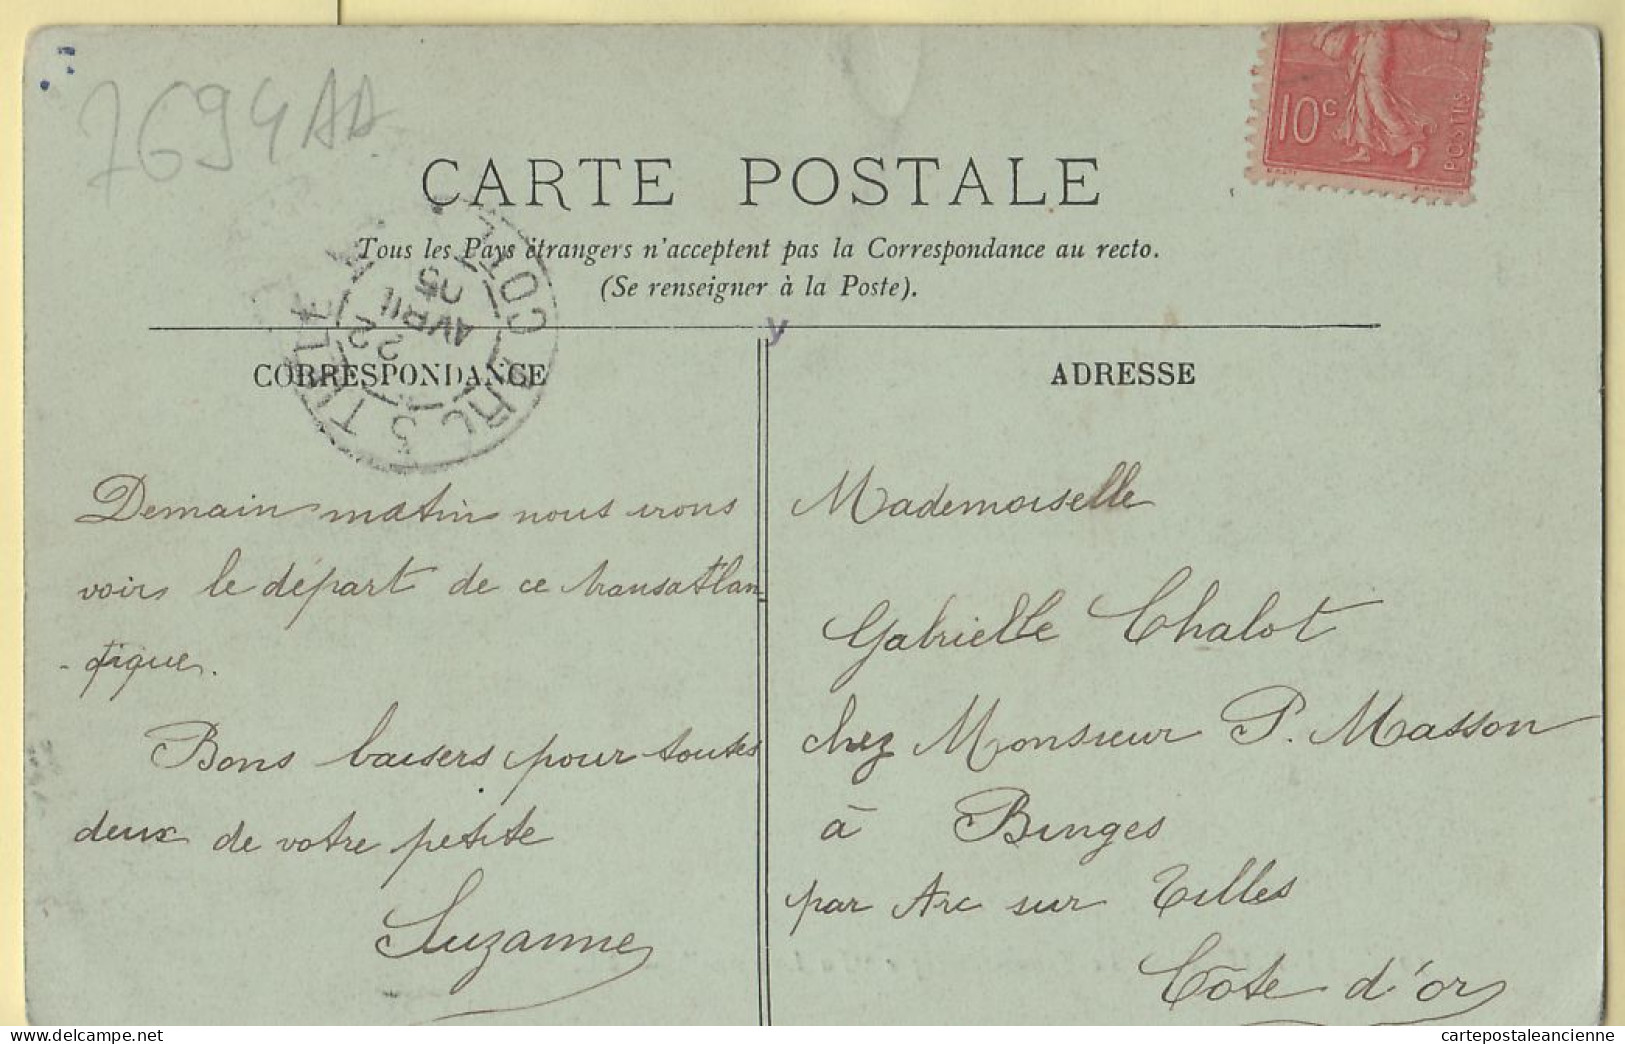 7694AA
10c
POSTES
CARTE POSTALE
Tous les Pays étrangers n'acceptent pas la Correspondance au recto.
(Se renseigner à la Poste).
22
AVRIL
05
CORRESPONDANCE
Demain matin nous irons
voir le départ de ce transatlan
-tique.
Bons baisers pour toutes
deux de votre petite
Suzanne
ADRESSE
Mademoiselle
Gabrielle Chalot
chez Monsieur P. Masson
à Binges
par Arc sur Tilles
Côte d'or
cartepostaleancienne